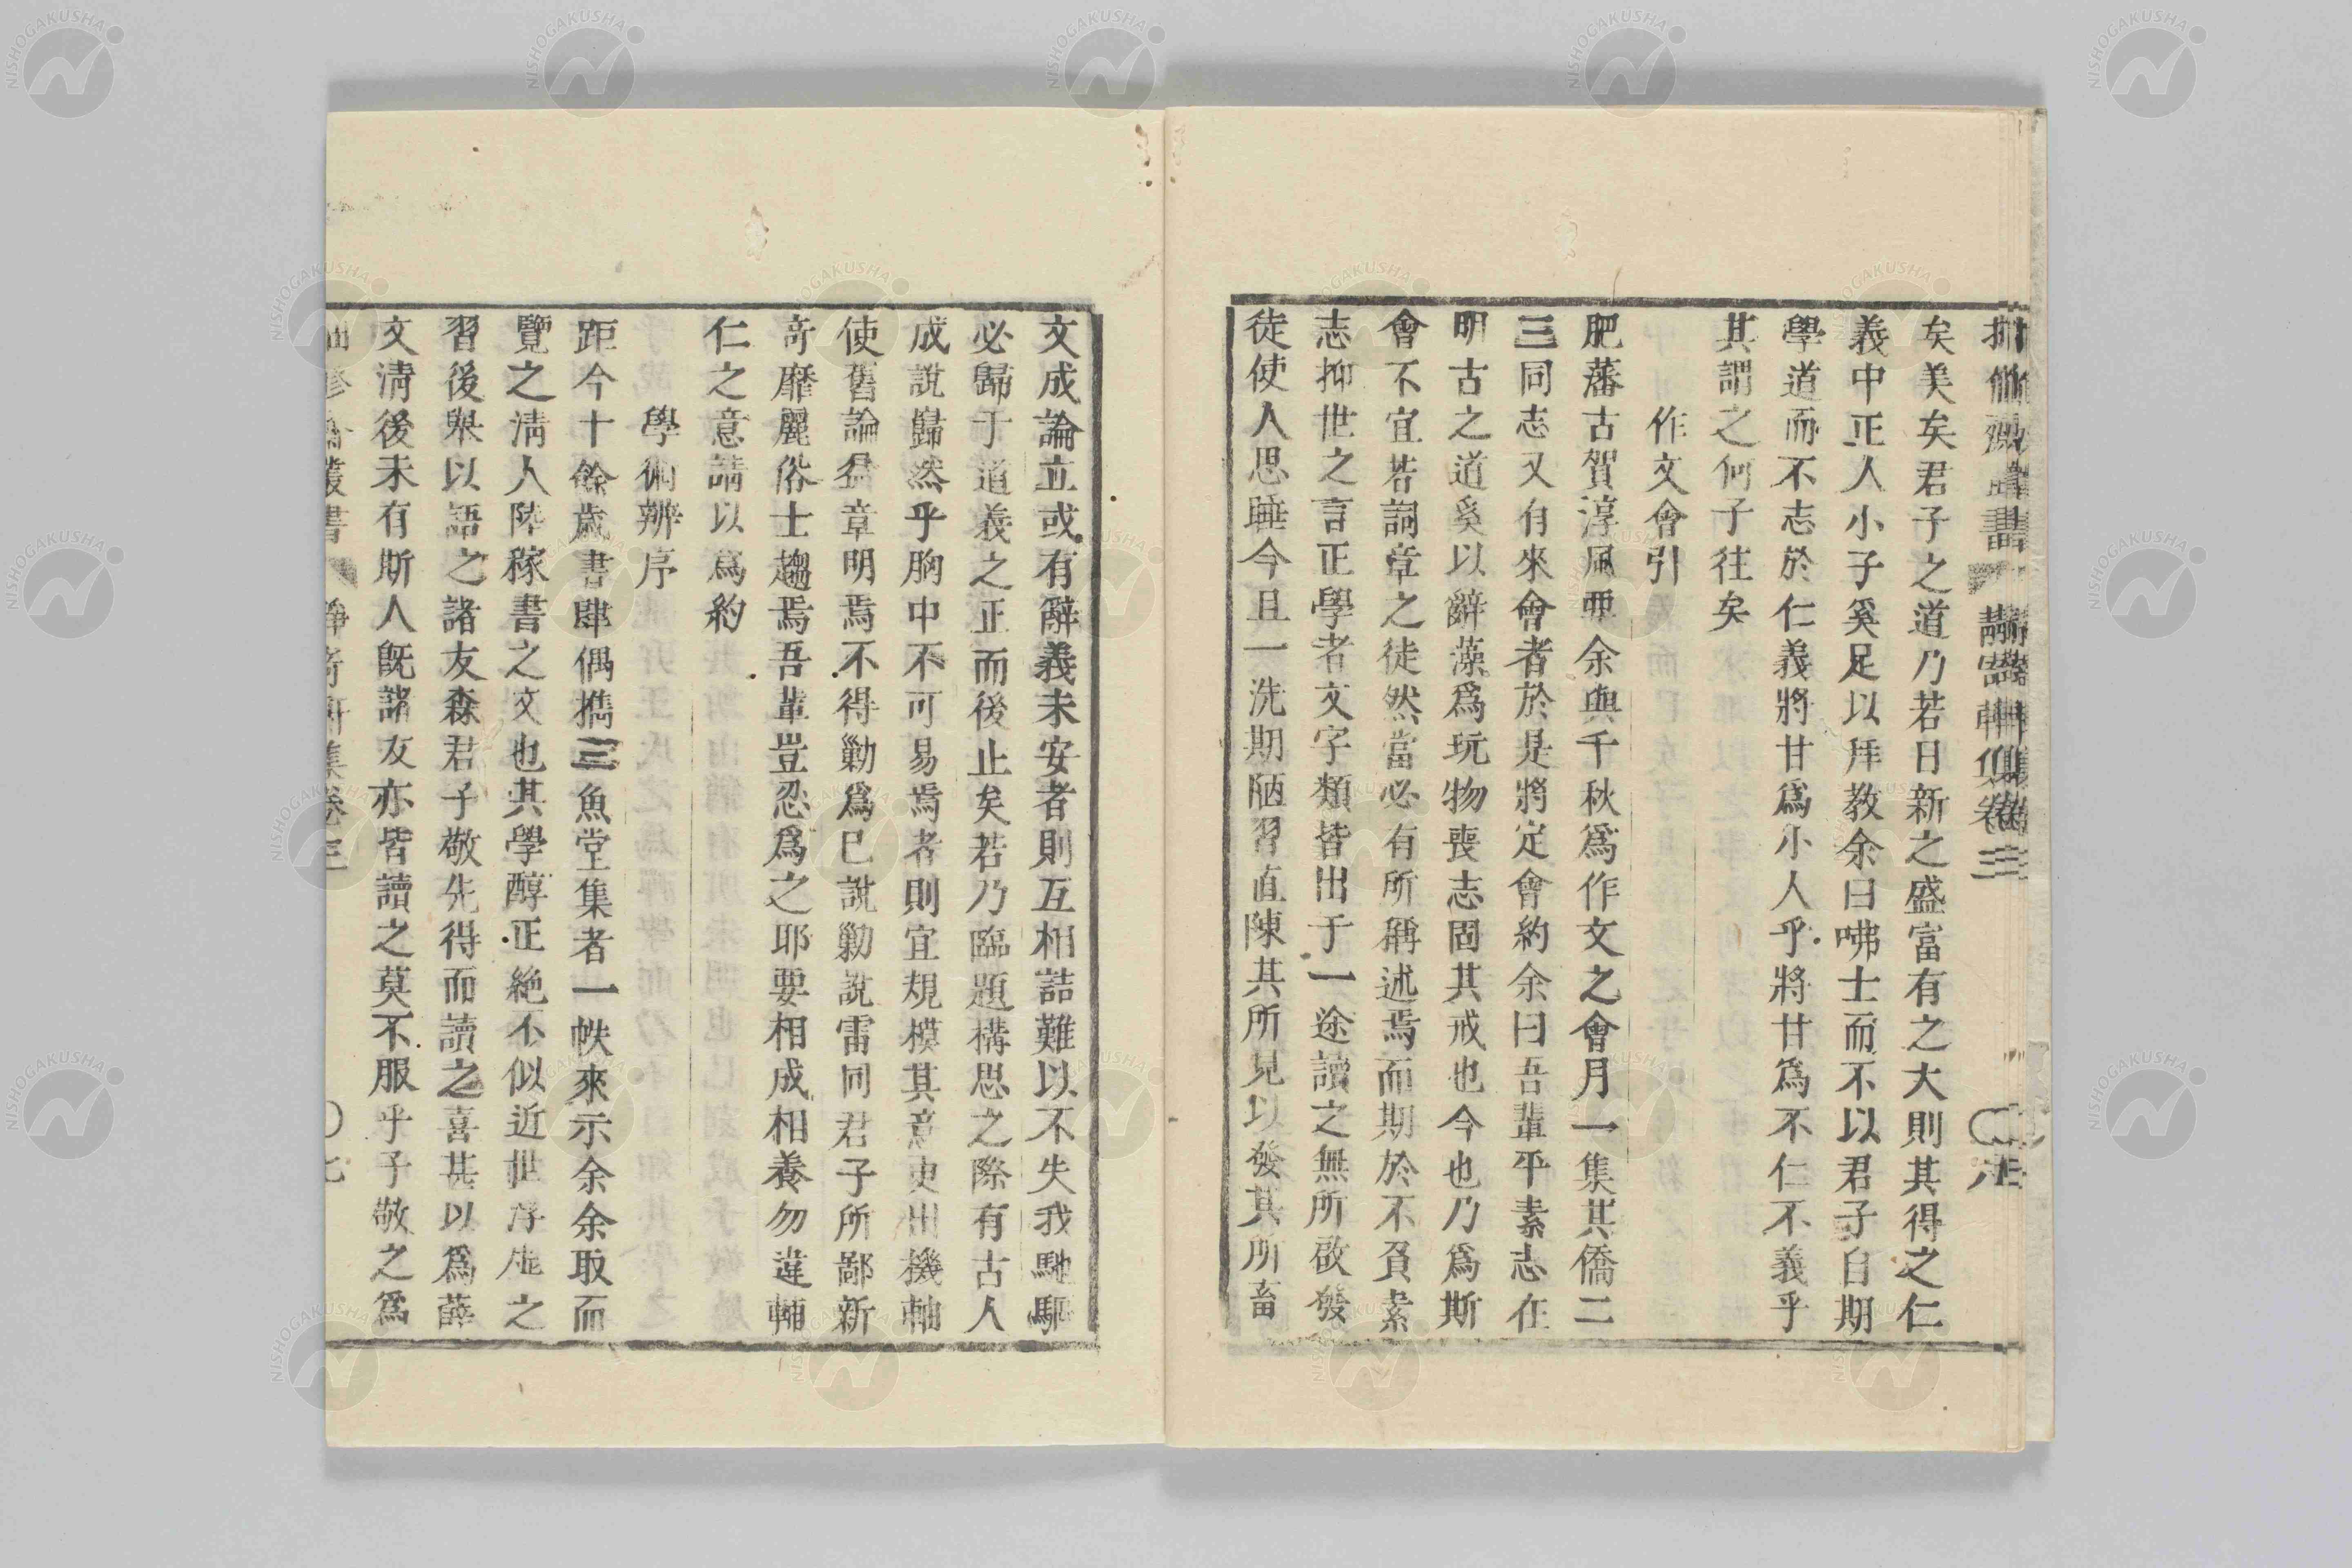 矣美矣君子之道乃若日新之盛富有之大則其得之仁
義中正人小子奚足以拜教余曰咈士而不以君子自期
學道而不志於仁義將甘爲小人乎將甘爲不仁不義乎
其謂之何子往矣
作文會引
肥藩古賀淳風亜余與千秋爲作文之會月一集其僑二
三同志又有來會者於是將定會約余曰吾輩平素志在
明古之道奚以辭藻爲玩物喪志固其戒也今也乃爲斯
會不宜若詞章之徒然當必有所稱述焉而期於不負素
志抑世之言正學者文字類皆出于一途讀之無所啟發
徒使人思睡今且一洗期陋習直陳其所見以發其所畜
文成論立或有辭義未安者則互相詰難以不失我馳驅
必歸于道義之正而後止矣若乃臨題構思之際有古人
成說歸然乎胸中不可易焉者則宜規模其意更出機軸
使舊論益章明焉不得勦爲已說勦說雷同君子所鄙新
竒靡麗俗士趨焉吾輩豈忍爲之耶要相成相養勿違輔
仁之意請以爲約
學術辨序
距今十餘歲書肆偶擕三魚堂集者一帙來示余余取而
覽之淸人陸稼書之文也其學醇正絶不似近世浮虛之
習後舉以語之諸友森君子敬先得而讀之喜甚以爲薛
文淸後未有斯人旣諸友亦皆讀之莫不服乎子敬之爲
叢書
集卷三
七
NISHOGAKUSHA